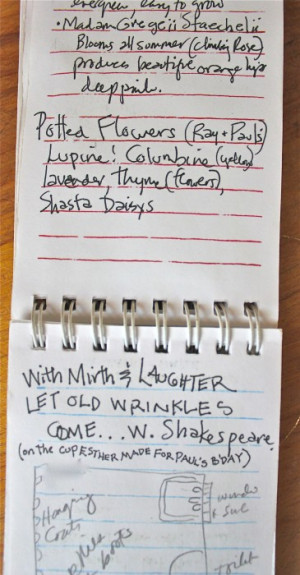 evergreen easy to grow
• Madam Gregeii Staechelii
Blooms all summer (Climbing Rose)
produces beautiful orange hips
deep pink.
Potted Flowers (Ray + Paul's)
Lupine! Columbine (yellow)
lavender, Thyme (flowers),
Shasta Daisys
With Mirth & LAUGHTER
LET OLD WRINKLES
COME... W. Shakespeare
(on the CUP ESTHER MADE FOR PAUL'S B'DAY)
Hanging
Coats
window
& Sill
boots
toilet